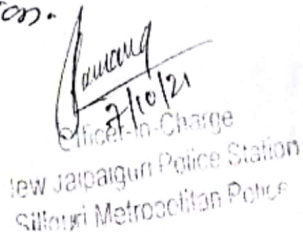 7/10/21
Officer-in-Charge
New Jalpaiguri Police Station
Siliguri Metropolitan Police